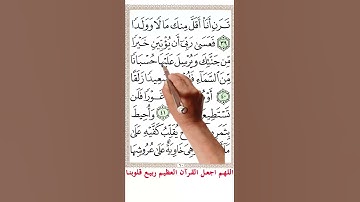 تَرَنِ أَنَا۠ أَقَلَّ مِنكَ مَالًا وَوَلَدًا
٣٩ فَعَسَىٰ رَبِّىٓ أَن يُؤْتِيَنِ خَيْرًا
مِّن جَنَّتِكَ وَيُرْسِلَ عَلَيْهَا حُسْبَانًا
مِّنَ ٱلسَّمَآءِ صَعِيدًا زَلَقًا
٤٠ أَوْ غَوْرًا فَلَن
تَسْتَطِيعَ ٤١ وَأُحِيطَ
بِثَمَرِهِۦ يُقَلِّبُ كَفَّيْهِ عَلَىٰ
هِىَ خَاوِيَةٌ عَلَىٰ عُرُوشِهَا
اللهم اجعل القرآن العظيم ربيع قلوبنا